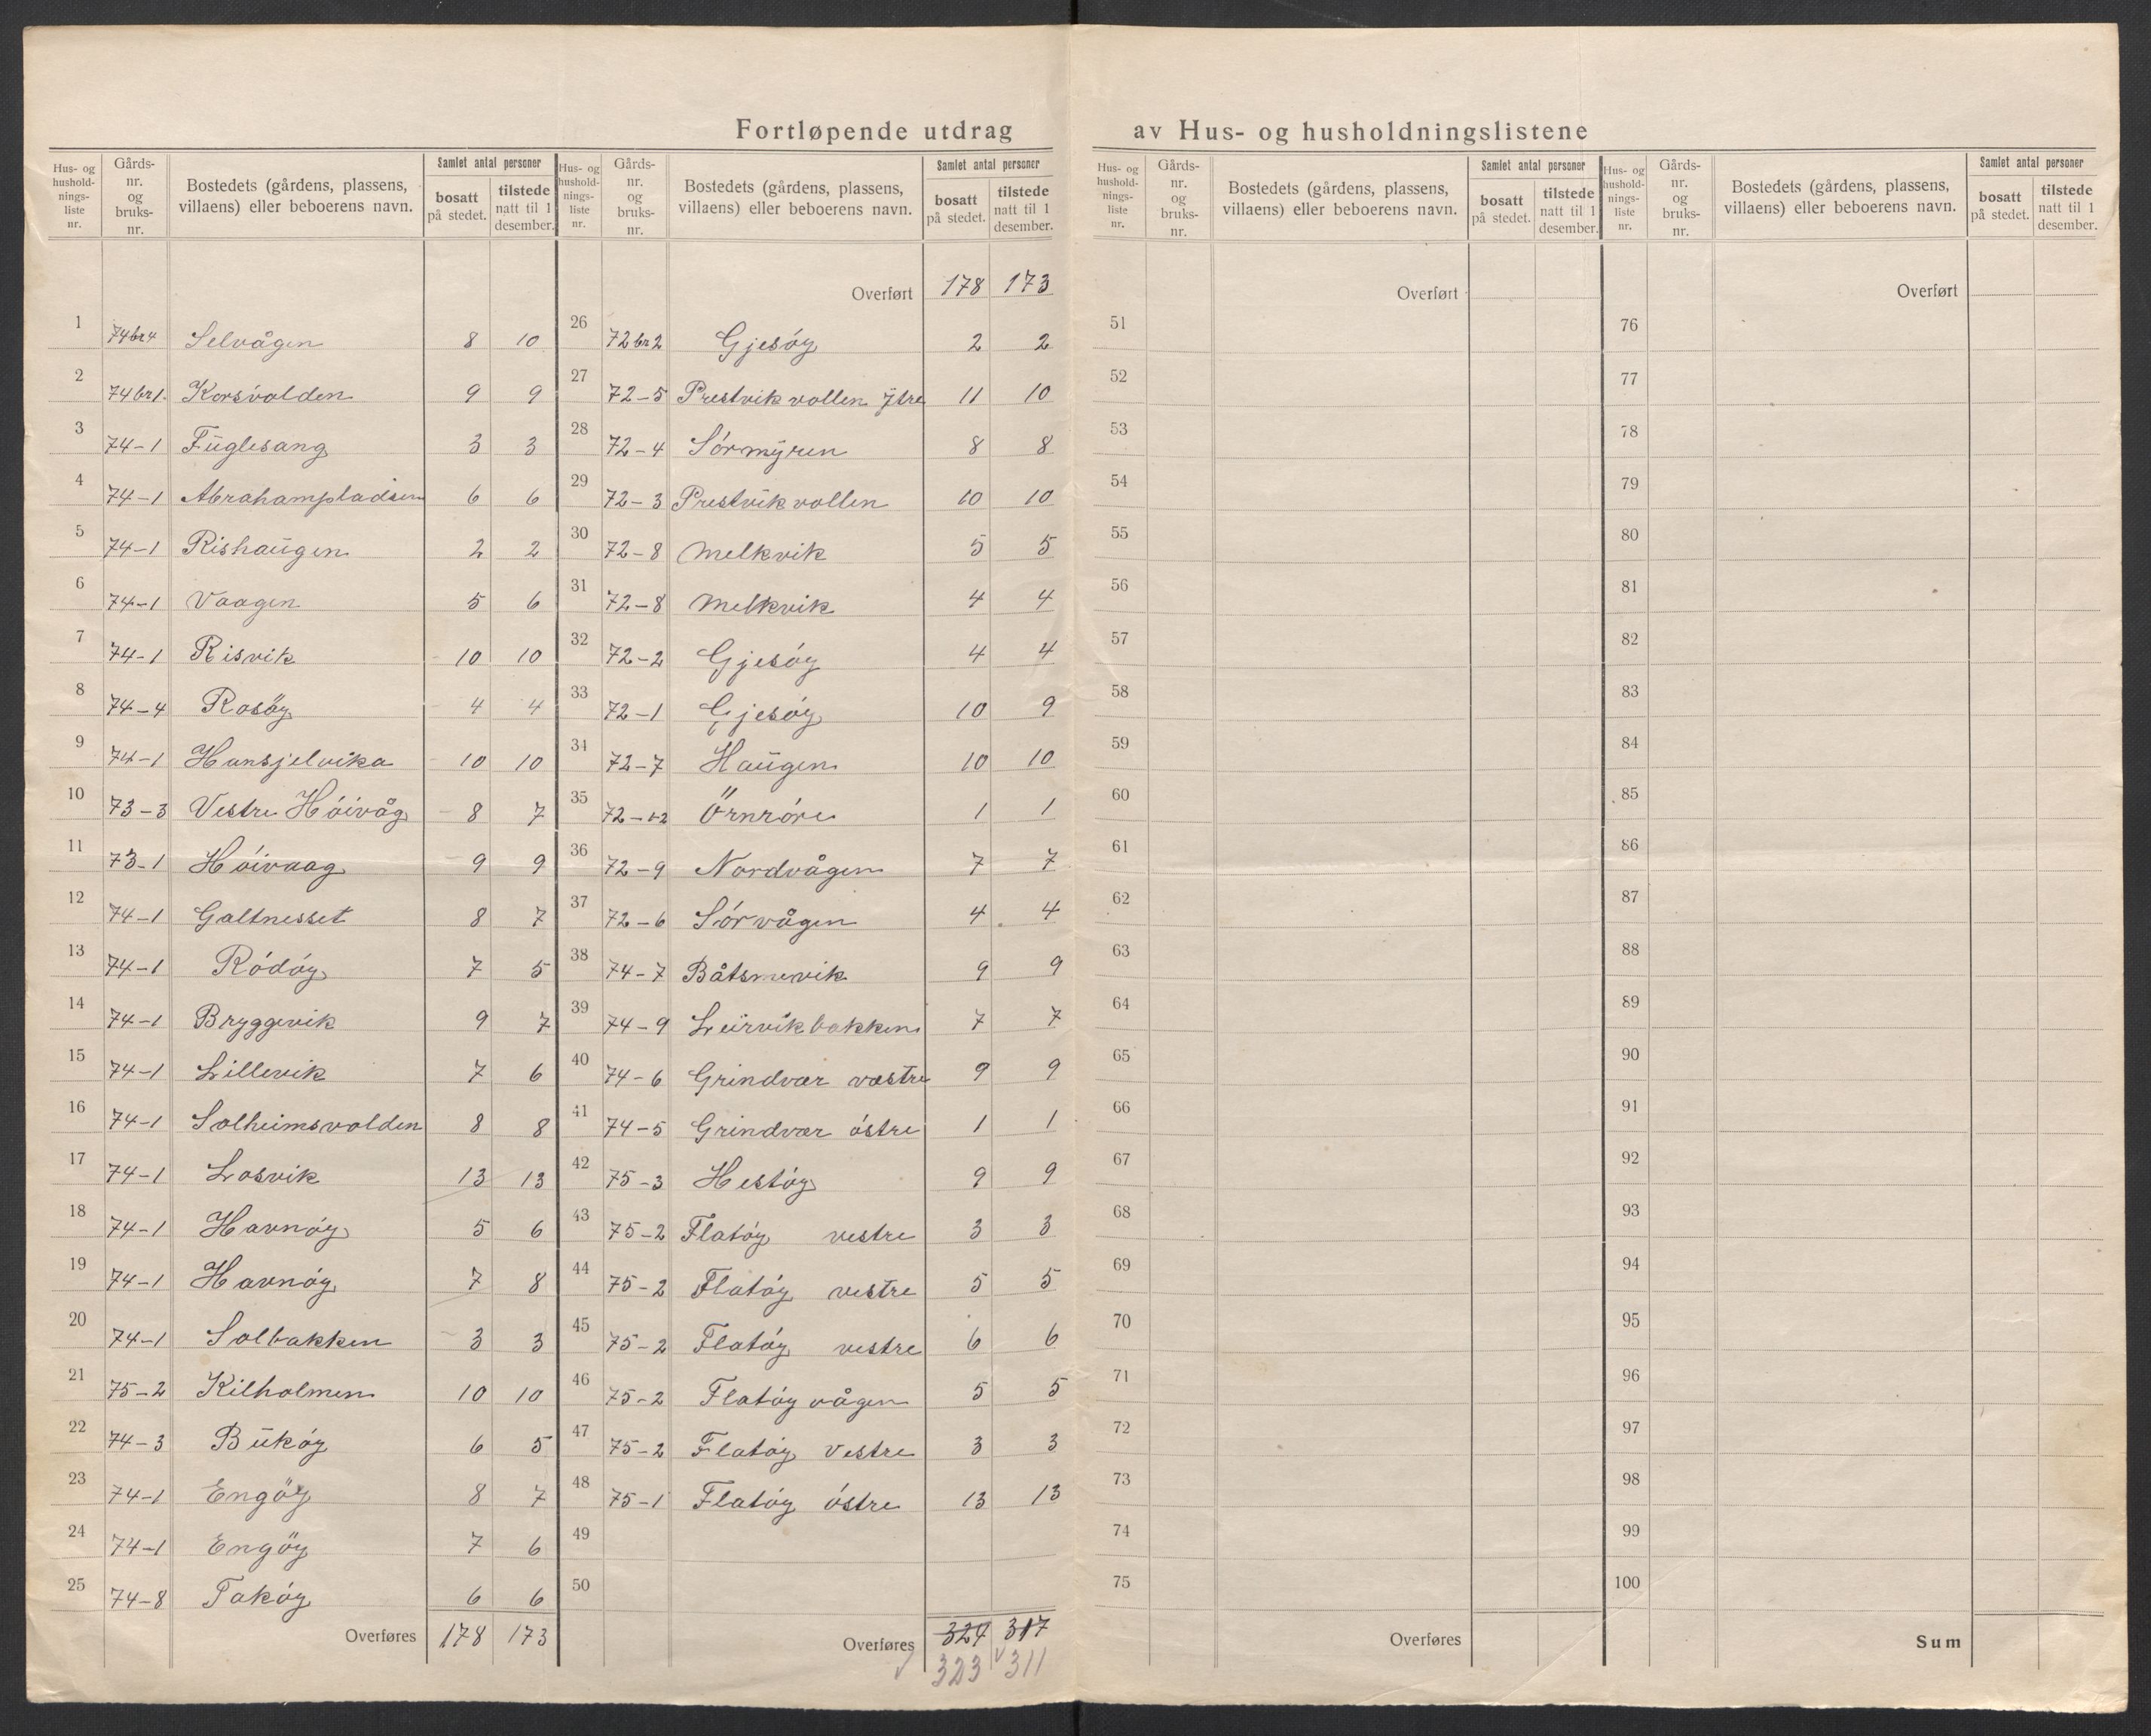 Fortløpende utdrag av Hus- og husholdningslistene
Hus- og hushold- nings- liste nr. | Gårds- nr. og bruks- nr. | Bostedets (gårdens, plassens, villaens) eller beboerens navn. | Samlet antal personer bosatt på stedet. | tilstede natt til 1 desember.
1 74br4 Selvågen 8 10
2 74br1. Korsvolden 9 9
3 74-1 Fuglesang 3 3
4 74-1 Abrahampladsen 6 6
5 74-1 Rishaugen 2 2
6 74-1 Vaagen 5 6
7 74-1 Risvik 10 10
8 74-4 Rosöy 4 4
9 74-1 Hansjelvika 10 10
10 73-3 Vestre Hóivåg 8 7
11 73-1 Hóivaag 9 9
12 74-1 Galtnesset 8 7
13 74-1 Ródóy 7 5
14 74-1 Bryggevik 9 7
15 74-1 Lillevik 7 6
16 74-1 Solheimsvolden 8 8
17 74-1 Losvik 13 13
18 74-1 Havnóy 5 6
19 74-1 Havnóy 7 8
20 74-1 Solbakken 3 3
21 75-2 Kilholmen 10 10
22 74-3 Bukóy 6 5
23 74-1 Engöy 8 7
24 74-1 Engöy 7 6
25 74-8 Takóy 6 6
Overføres 178 173
Hus- og hushold- nings- liste nr. | Gårds- nr. og bruks- nr. | Bostedets (gårdens, plassens, villaens) eller beboerens navn. | Samlet antal personer bosatt på stedet. | tilstede natt til 1 desember.
Overført 178 173
26 72br2 Gjesóy 2 2
27 72-5 Prestvikvollen ytre 11 10
28 72-4 Sórmyren 8 8
29 72-3 Prestvikvollen 10 10
30 72-8 Melkvik 5 5
31 72-8 Melkvik 4 4
32 72-2 Gjesóy 4 4
33 72-1 Gjesóy 10 9
34 72-7 Haugen 10 10
35 72-12 Örnróre 1 1
36 72-9 Nordvågen 7 7
37 72-6 Sórvågen 4 4
38 74-7 Båtsmevik 9 9
39 74-9 Leirvikbakken 7 7
40 74-6 Grindvær væstre 9 9
41 74-5 Grindvær óstre 1 1
42 75-3 Hestóy 9 9
43 75-2 Flatóy vestre 3 3
44 75-2 Flatóy vestre 5 5
45 75-2 Flatóy vestre 6 6
46 75-2 Flatóy vågen 5 5
47 75-2 Flatóy Vestre 3 3
48 75-1 Flatóy óstre 13 13
49
50
Overføres 324 317
323 311
Hus- og hushold- nings- liste nr. | Gårds- nr. og bruks- nr. | Bostedets (gårdens, plassens, villaens) eller beboerens navn. | Samlet antal personer bosatt på stedet. | tilstede natt til 1 desember.
Overført
51
52
53
54
55
56
57
58
59
60
61
62
63
64
65
66
67
68
69
70
71
72
73
74
75
Overføres
Hus- og hushold- nings- liste nr. | Gårds- nr. og bruks- nr. | Bostedets (gårdens, plassens, villaens) eller beboerens navn. | Samlet antal personer bosatt på stedet. | tilstede natt til 1 desember.
Overført
76
77
78
79
80
81
82
83
84
85
86
87
88
89
90
91
92
93
94
95
96
97
98
99
100
Sum